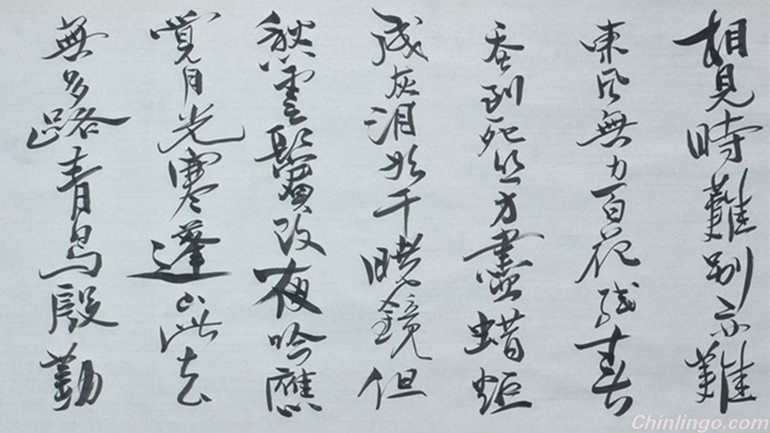 相見時難別亦難
東风無力百花残春
蚕到死丝方盡蜡炬
成灰泪始干曉鏡但
愁雲鬢改夜吟應
覺月光寒蓬山此去
無多路青鳥殷勤
Chinlingo.com